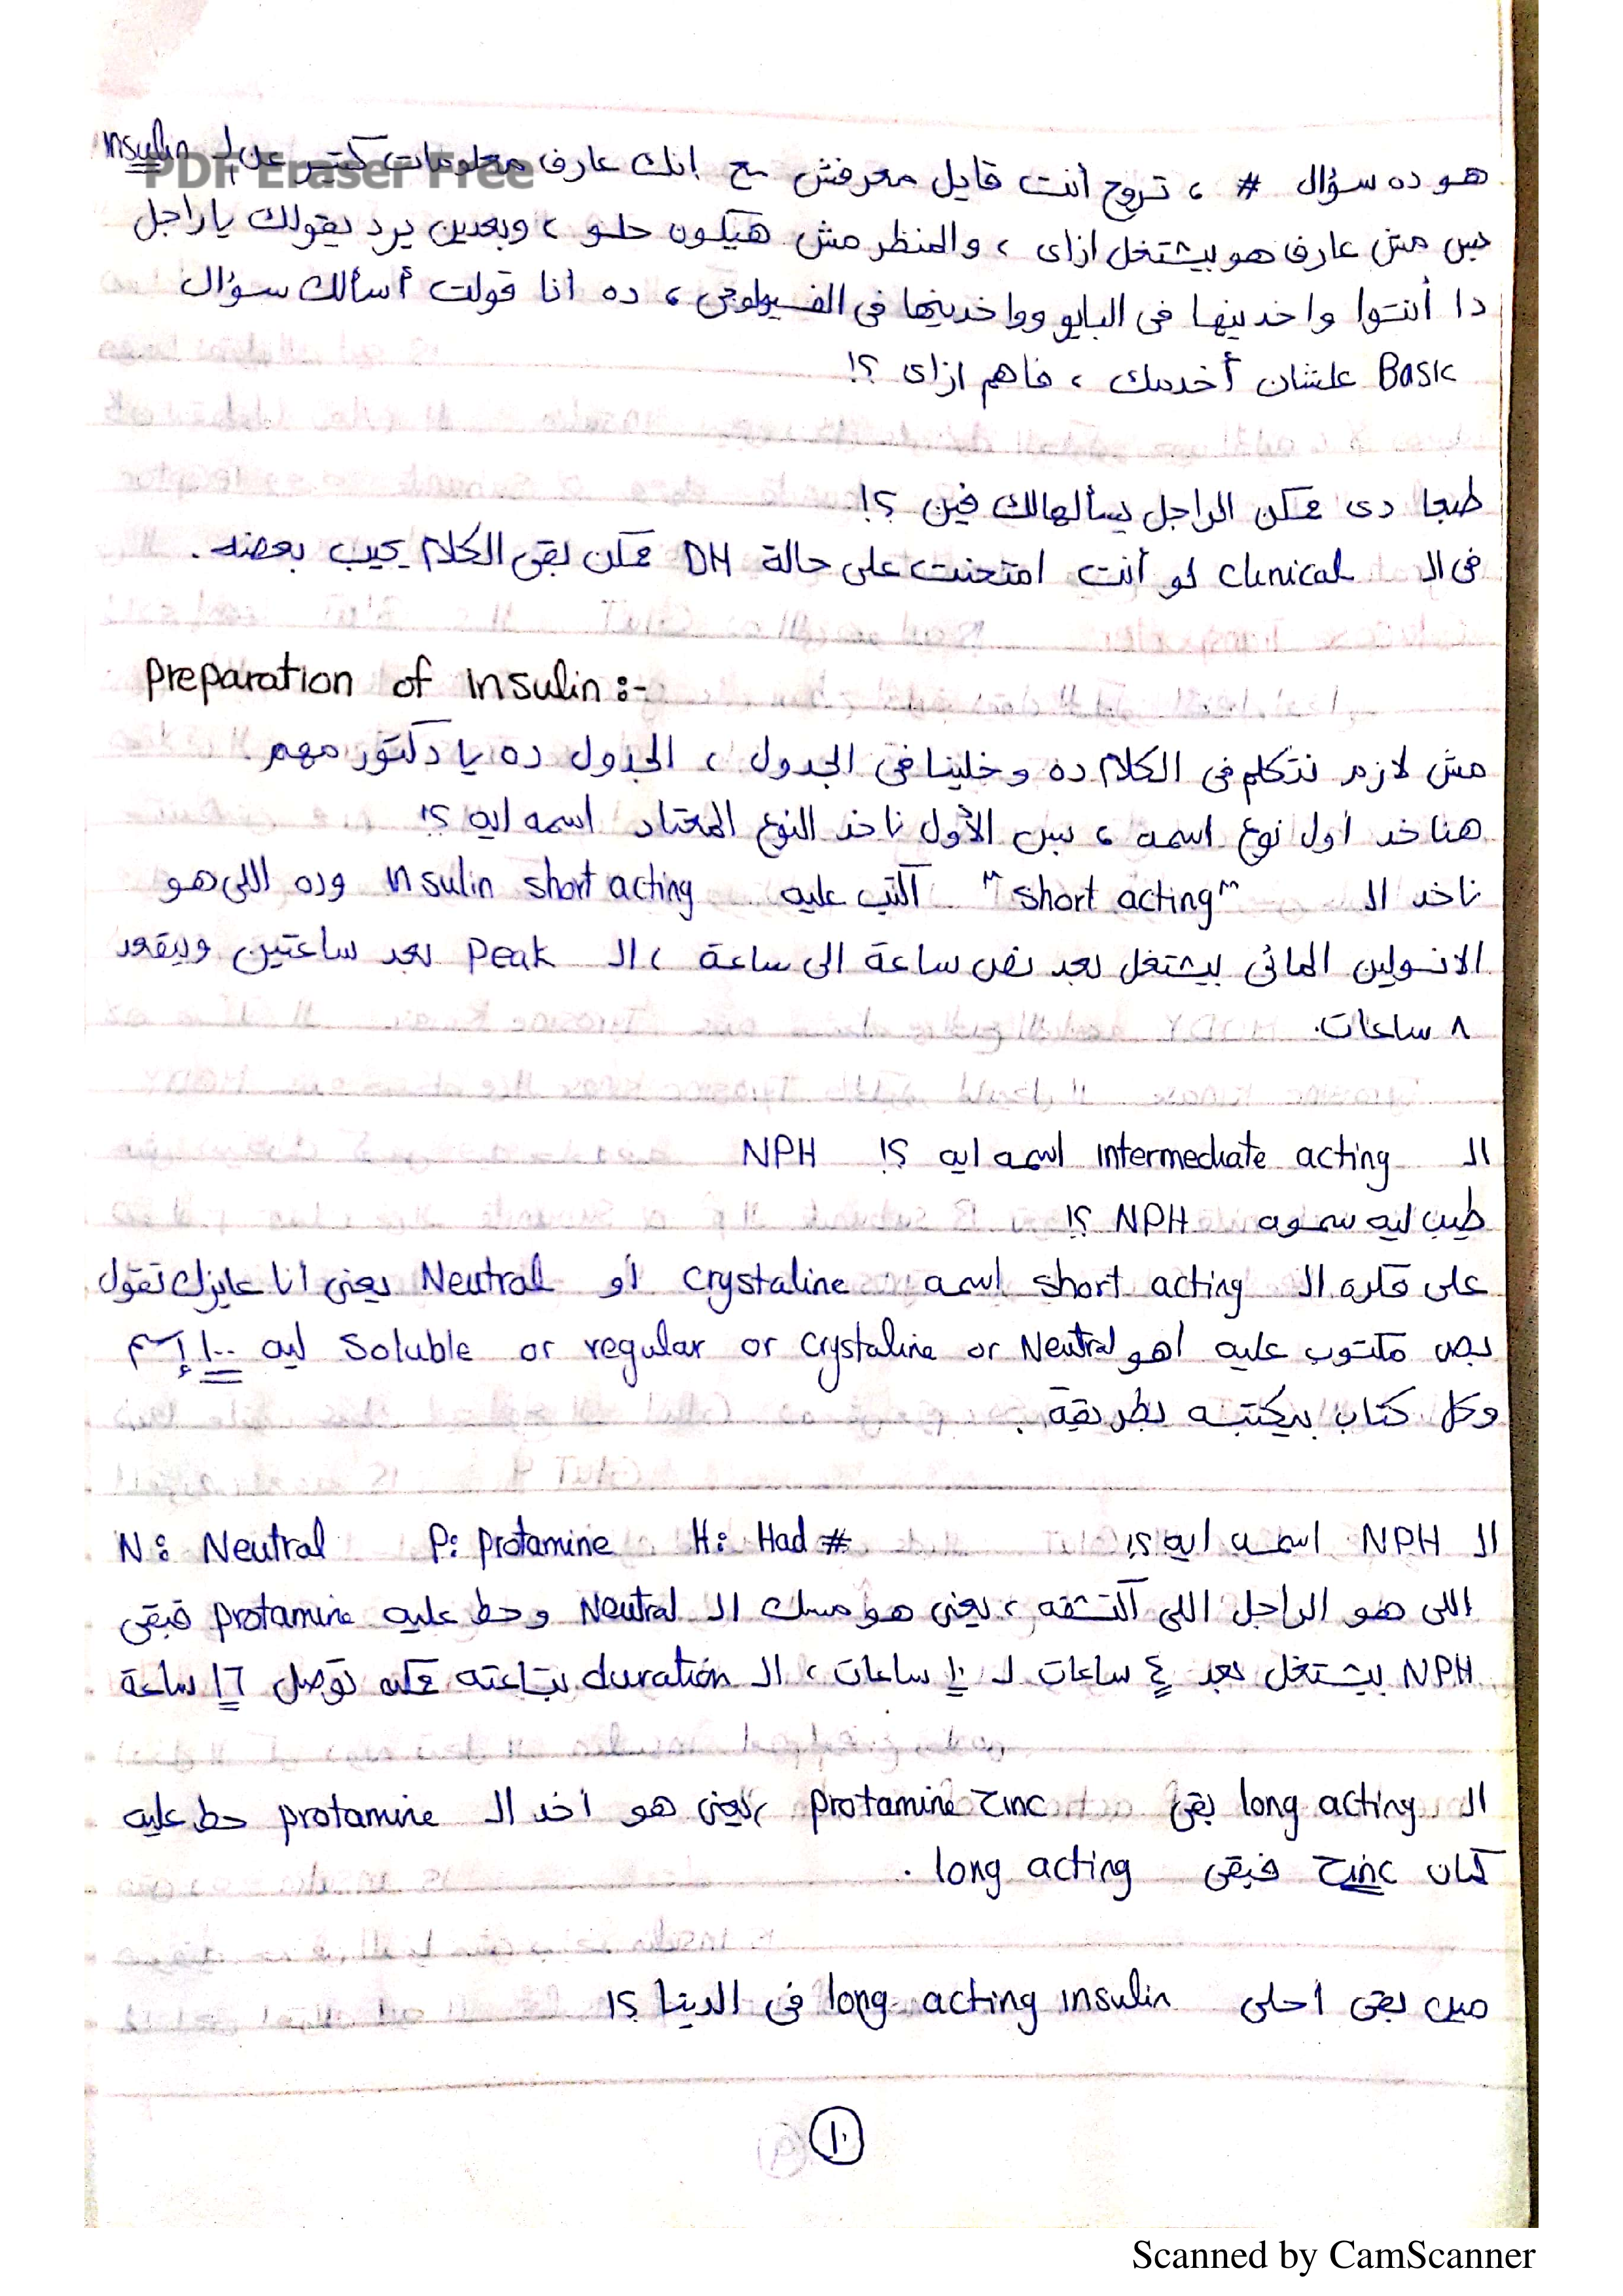 هو ده سؤال # ، تروح أنت قايل معرفش مع إنك عارف معلومات كتير عن ال Insulin
PDF Eraser Free
بس مش عارف هو بيشتغل ازاى ، والمنظر مش هيكون حلو ، وبعدين يرد يقولك ياراجل
دا أنتوا واخدينها فى البايو وواخدينها فى الفسيولوجى ، ده أنا قولت أسألك سؤال
Basic علشان أخدمك ، فاهم ازاى ؟!
طبعا دى ممكن الراجل يسألهالك فين ؟!
فى ال clinical لو أنت امتحنت على حالة DM ممكن بقى الكلام يجيب بعضه .
Preparation of insulin :-
مش لازم نتكلم فى الكلام ده وخلينا فى الجدول ، الجدول ده يا دكتور مهم .
هناخد اول نوع اسمه ، بس الأول ناخد النوع المعتاد اسمه ايه ؟!
ناخد ال "short acting" اكتب عليه insulin short acting وده اللى هو
الانسولين المائى بيشتغل بعد نص ساعة الى ساعة ، ال Peak بعد ساعتين وبيقعد
٨ ساعات.
ال intermediate acting اسمه ايه ؟! NPH
طيب ليه سموه NPH ؟!
على فكره ال short acting اسمه crystaline أو Neutral يعنى أنا عايزك تقول
بص مكتوب عليه اهو Soluble or regular or crystaline or Neutral ليه ١٠٠ إسم
وكل كتاب بيكتبه بطريقة .
ال NPH اسمه ايه ؟! N: Neutral P: protamine H: Had #
اللى هو الراجل اللى اكتشفه ، يعنى هو مسك ال Neutral وحط عليه protamine فبقى
NPH بيشتغل بعد ٤ ساعات ل ١٠ ساعات ، ال duration بتاعته ممكن توصل ١٦ ساعة
ال long acting بقى protamine zinc ، يعنى هو اخد ال protamine حط عليه
كمان Zinc فبقى long acting .
مين بقى احلى long acting insulin فى الدينا ؟!
١٠
Scanned by CamScanner